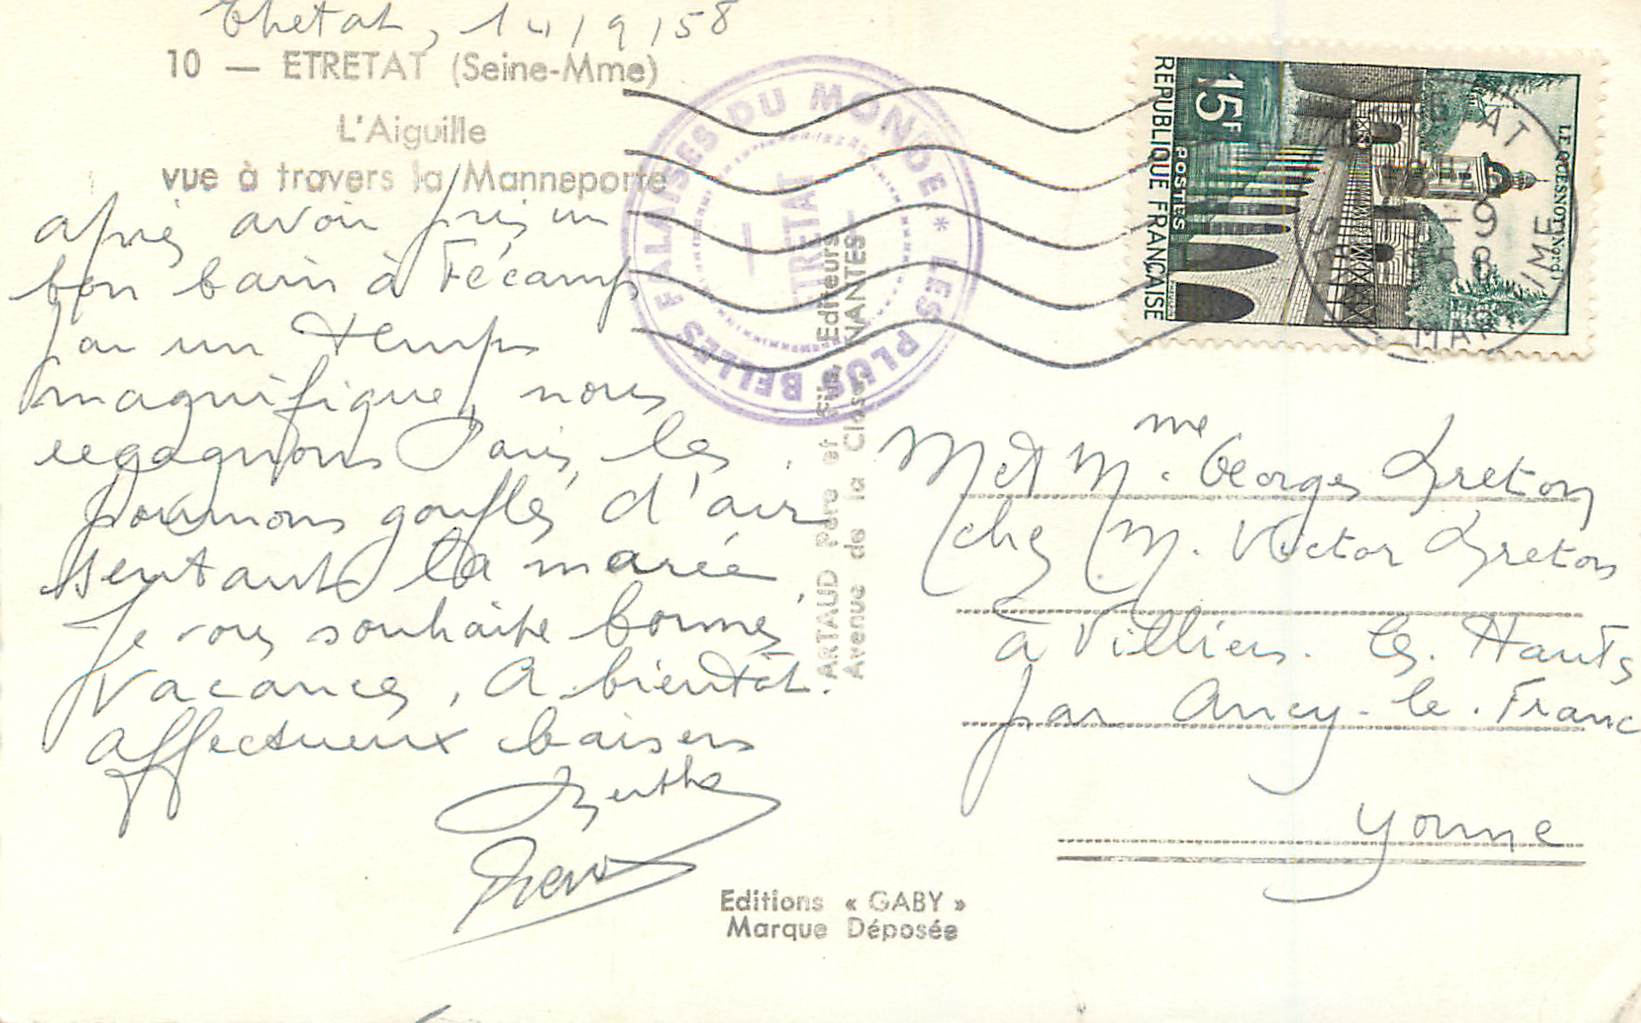 Etretat, 14/9/58
10 — ETRETAT (Seine-Mme)
L'Aiguille
vue à travers la Manneporte
après avoir pris un
bon bain à Fécamp
par un temps
magnifique, nous
regagnons Paris, les
poumons gonflés d'air
sentant la marée.
Je vous souhaite bonnes
vacances, A bientôt.
affectueux baisers
Berthe
LES PLUS BELLES FALAISES DU MONDE *
ETRETAT
ARTAUD Père et Fils, Editeurs
Avenue de la Close, NANTES
Editions « GABY »
Marque Déposée
REPUBLIQUE FRANÇAISE
15F
POSTES
LE QUESNOY (Nord)
M et Mme Georges Breton
chez M. Victor Breton
à Villiers. les. Hauts
par Ancy-le. Franc
Yonne